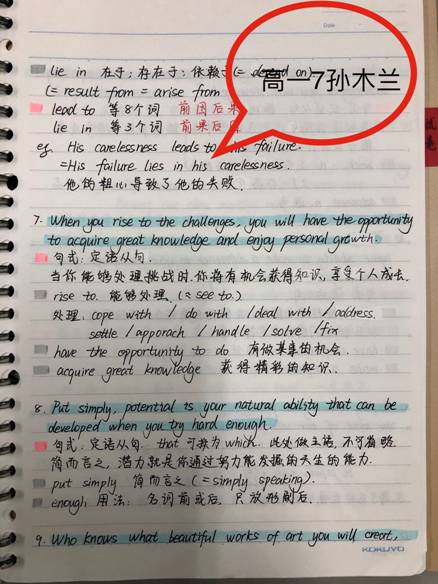 Date
lie in 在于；存在于；依赖于(= depend on)
(= result from = arise from
高一7孙木兰
lead to 等8个词 前因后果
lie in 等3个词 前果后因
eg. His carelessness leads to his failure.
=His failure lies in his carelessness.
他的粗心导致了他的失败.
7. When you rise to the challenges, you will have the opportunity
to acquire great knowledge and enjoy personal growth.
句式：定语从句.
当你能够处理挑战时.你将有机会获得知识，享受个人成长.
rise to. 能够处理. (= see to.)
处理. cope with / do with / deal with / address.
settle / apporach / handle / solve / fix
have the opportunity to do 有做某事的机会.
acquire great knowledge 获得精彩的知识.
8. Put simply, potential is your natural ability that can be
developed when you try hard enough.
句式：定语从句. that可换为which. 此处做主语，不可省略.
简而言之，潜力就是你通过努力能发掘的天生的能力.
put simply 简而言之 (= simply speaking).
enough 用法：名词前或后，只放形副后.
9. Who knows what beautiful works of art you will create,
KOKUYO